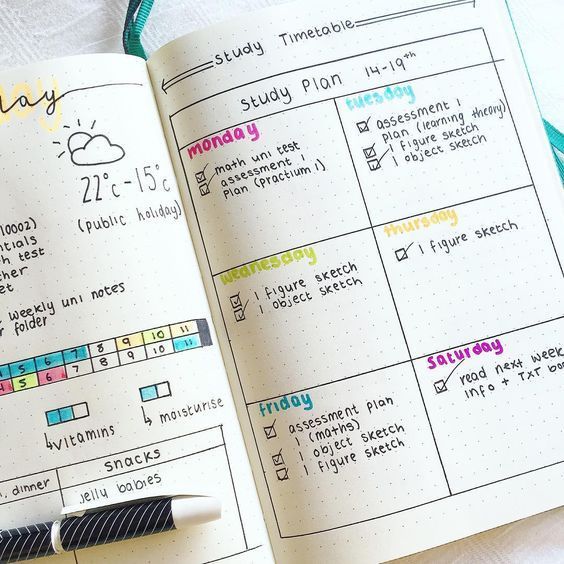 day
22°c-15°c
(public holiday)
10002)
test
weekly uni notes
folder
5 6 7 8 9 10 11
4 5 6 7 8 9 10 11
vitamins
moisturise
snacks
dinner
jelly babies
study Timetable
study Plan 14-19th
monday
math uni test
assessment 1
Plan (Practium 1)
tuesday
assessment 1
plan (learning theory)
1 figure sketch
1 object sketch
wednesday
1 figure sketch
1 object sketch
thursday
1 figure sketch
friday
assessment plan
1 (maths)
1 object sketch
1 figure sketch
saturday
read next week
info + TXT